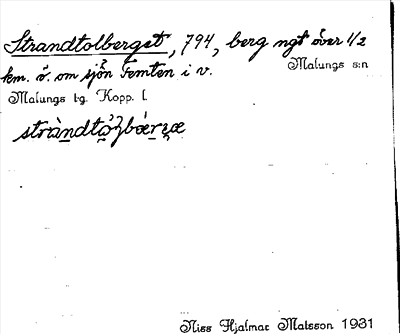 Strandtolberget, 794, berg ngt över 1/2
km. ö. om sjön Femten i v.
Malungs s:n
Malungs tg. Kopp. l.
Niss Hjalmar Matsson 1931